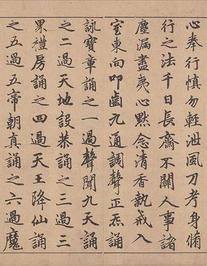 心奉行慎勿輕泄風刀考身脩
行之法千日長齋不關人事諸
塵漏盡夷心默念清香執戒入
室東向叩齒九通調聲正炁
詠寳章誦之一過聲聞九天誦
之二過天地設恭誦之三過三
界禮房誦之四過天王降仙誦
之五過五帝朝真誦之六過魔